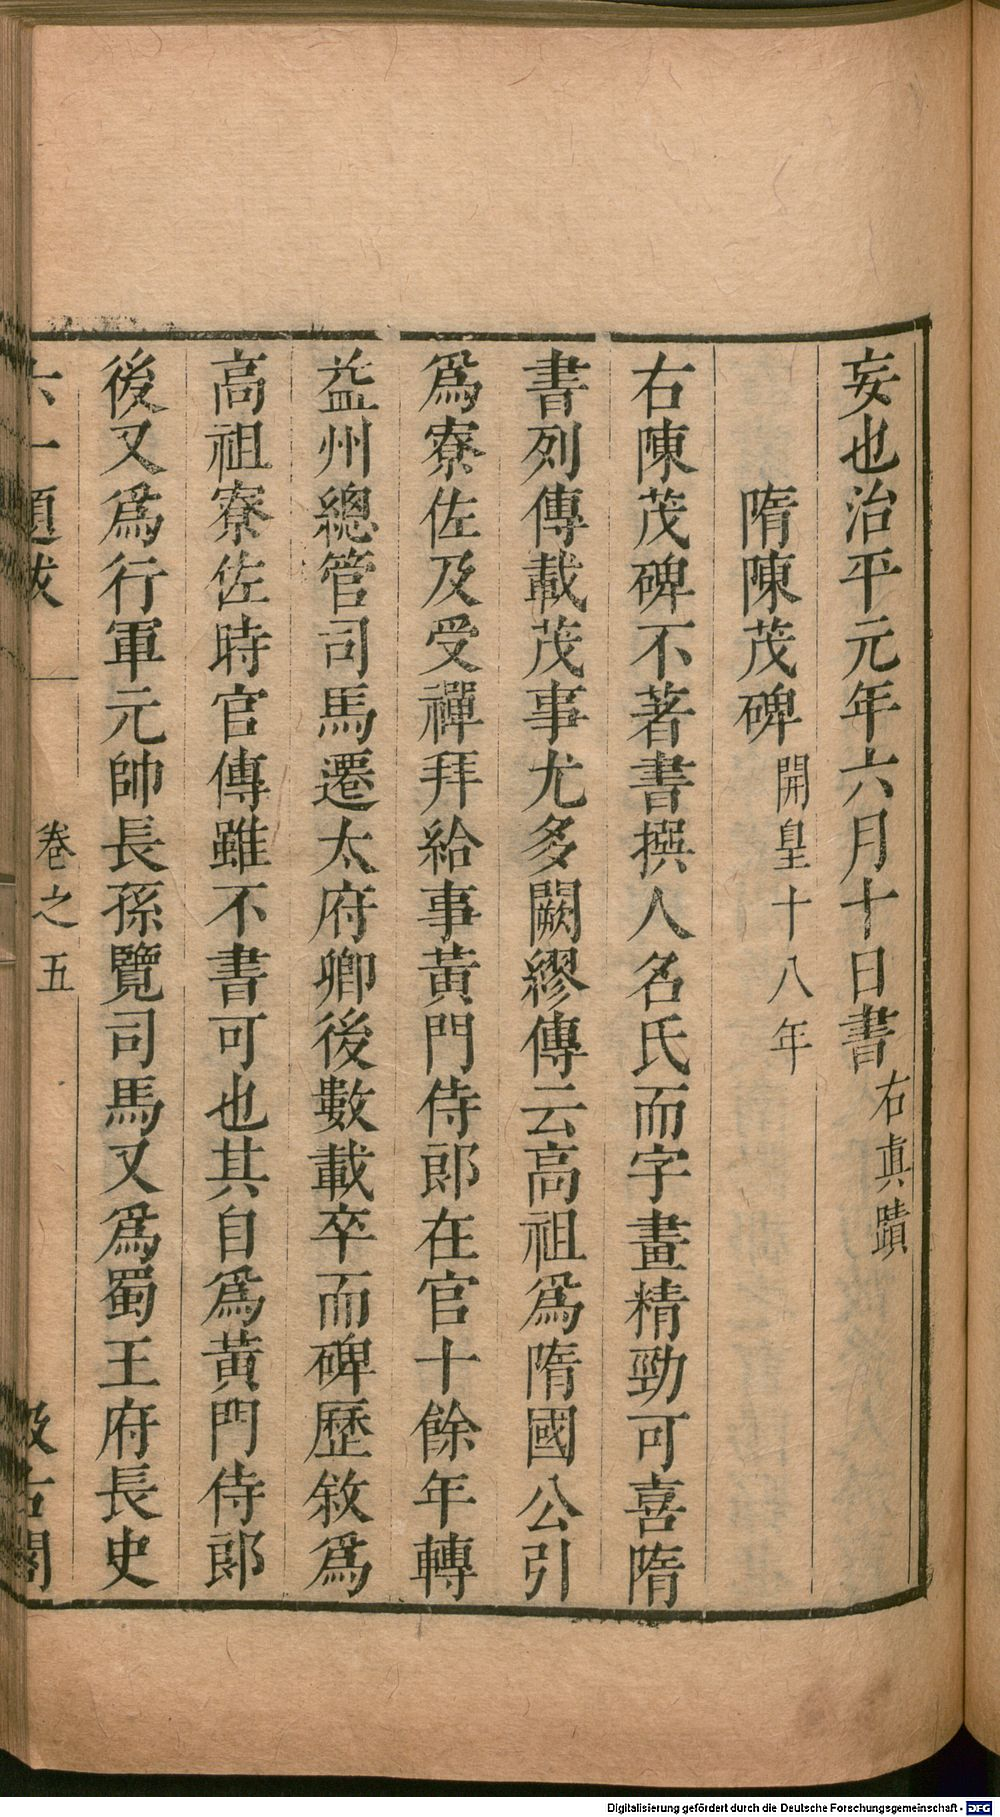 妄也治平元年六月十日書右真蹟
隋陳茂碑開皇十八年
右陳茂碑不著書撰人名氏而字畫精勁可喜隋
書列傳載茂事尤多闕繆傳云高祖爲隋國公引
爲寮佐及受禪拜給事黃門侍郎在官十餘年轉
益州總管司馬遷太府卿後數載卒而碑歷敘爲
高祖寮佐時官傳雖不書可也其自爲黃門侍郎
後又爲行軍元帥長孫覽司馬又爲蜀王府長史
六一題跋
卷之五
汲古閣
Digitalisierung gefördert durch die Deutsche Forschungsgemeinschaft - DFG